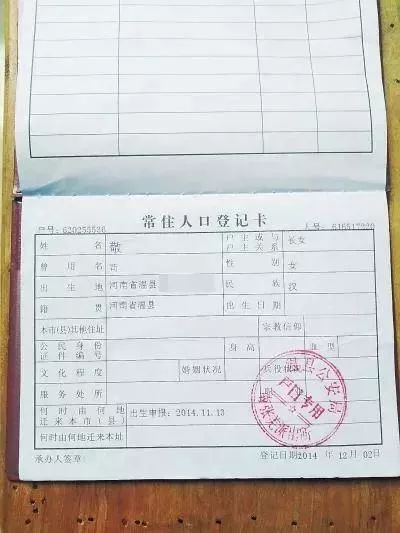 常住人口登记卡
户号: 620255536 人号:
姓名 敬 户主或与户主关系 长女
曾用名 苟 性别 女
出生地 河南省温县 民族 汉
籍贯 河南省温县 出生日期
本市(县)其他住址 宗教信仰
公民身份证件编号 身高 血型
文化程度 婚姻状况 兵役状况
服务处所
何时由何地迁来本市(县) 出生申报:2014.11.13
何时由何地迁来本址
承办人签章: 登记日期2014 年 12月 02日
温县公安局
户口专用
派出所